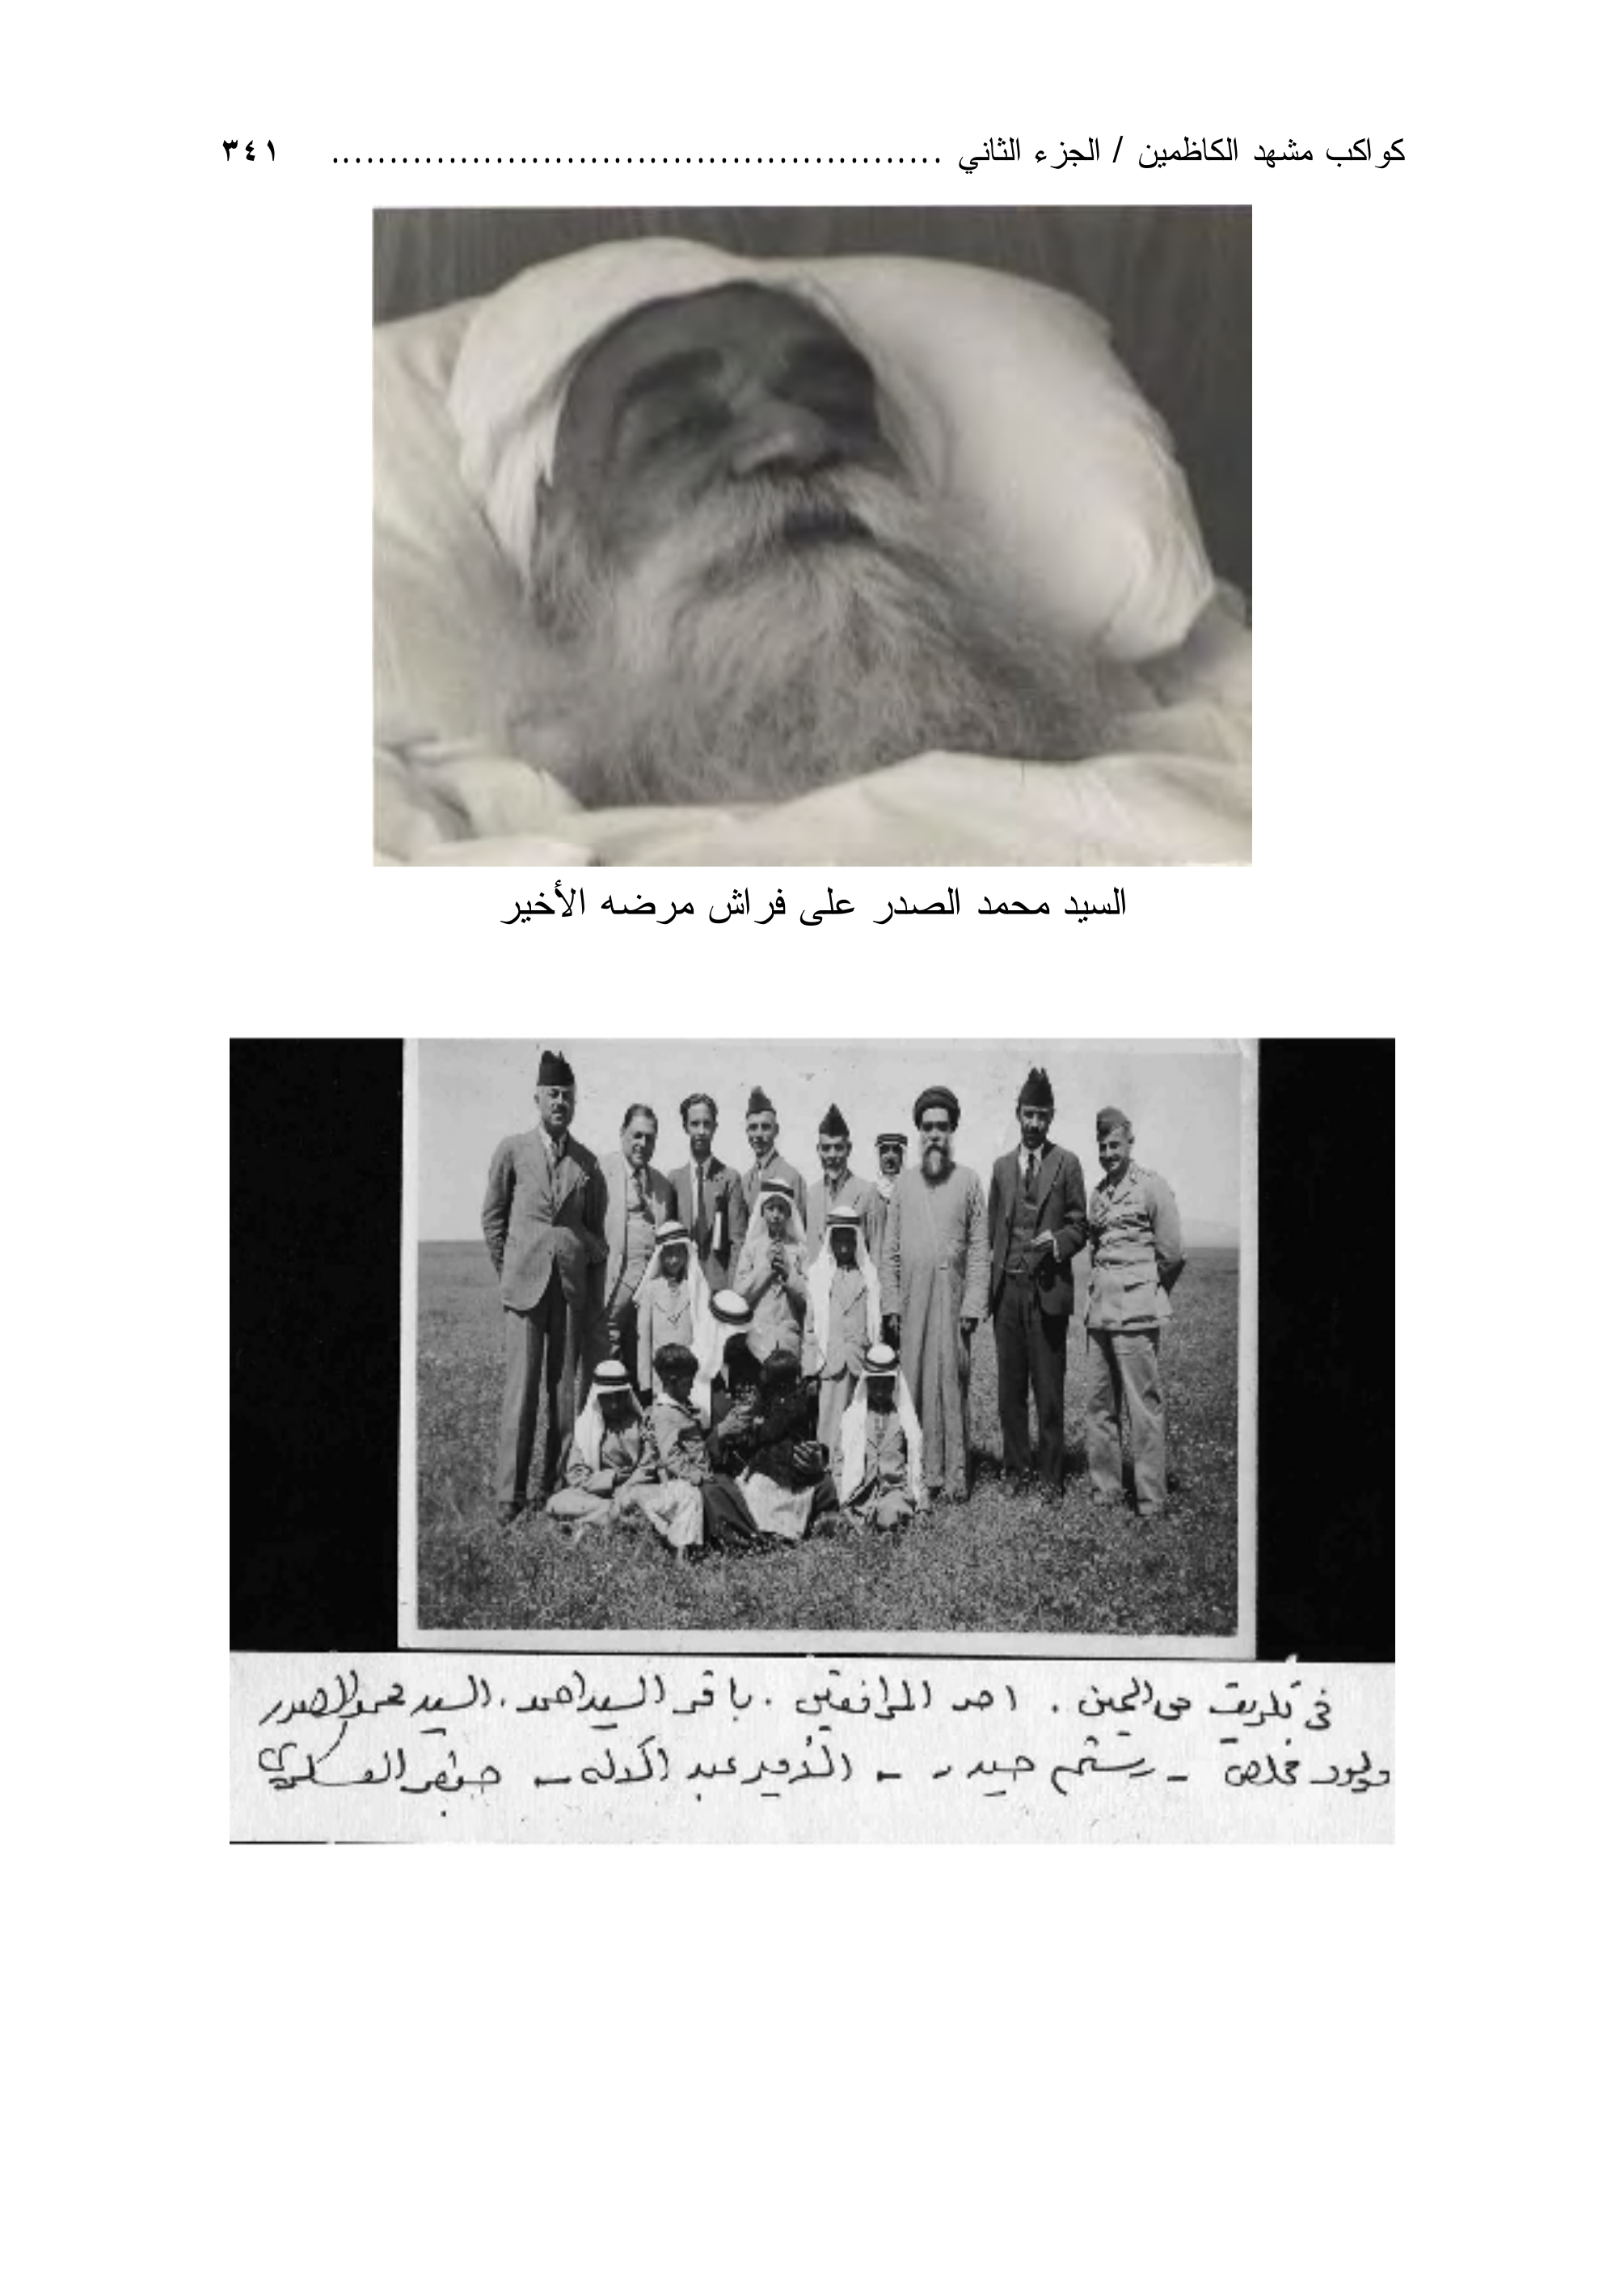 كواكب مشهد الكاظمين / الجزء الثاني ..................................................... ٣٤١
السيد محمد الصدر على فراش مرضه الأخير
في تكريت من اليمين . احد المرافقين . باقر السيد احمد . السيد محمد الصدر
مولود مخلص - رستم حيدر - الأمير عبد الاله - جعفر العسكري